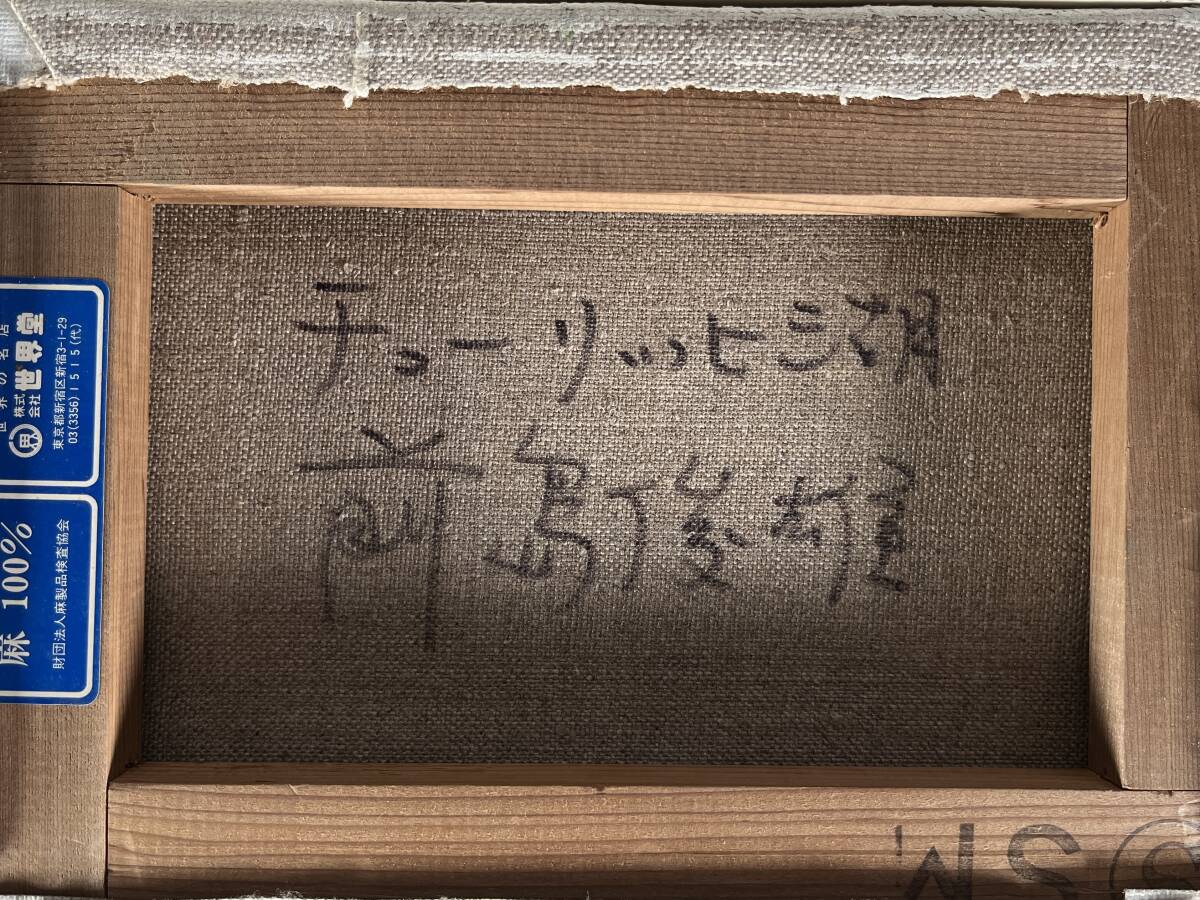 チューリッヒ湖
前島
世界の名店
株式会社 世界堂
東京都新宿区新宿3-1-29
03(3356)1515(代)
麻 100%
財団法人麻製品検査協会
SM